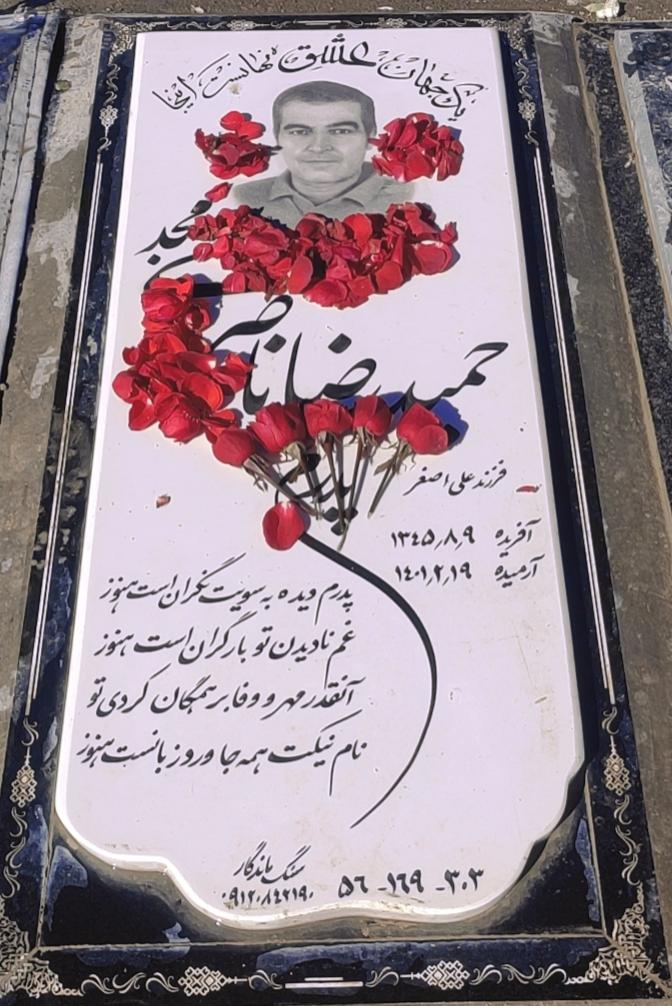 یک جهان عشق نهانست اینجا
حمیدرضا ناصری مجد
پدرم
فرزند علی اصغر
آفریده ۱۳۴۵٫۸٫۹
آرمیده ۱۴۰۱٫۲٫۱۹
پدرم دیده به سویت نگران است هنوز
غم نادیدن تو بار گران است هنوز
آنقدر مهر و وفا بر همگان کردی تو
نام نیکت همه جا ورد زبانست هنوز
سنگ ماندگار
۰۹۱۲۰۸۴۲۱۹۰
۵۶ - ۱۶۹ - ۳۰۳